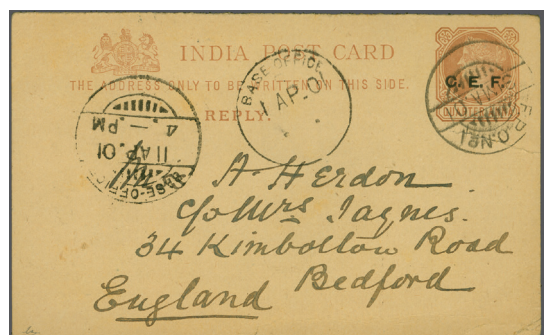 INDIA POST CARD
THE ADDRESS ONLY TO BE WRITTEN ON THIS SIDE.
REPLY.
C. E. F.
BASE OFFICE
1 AP. 01
BASE-OFFICE
11 AP. 01
4. — PM
A. Herdon
c/o Mrs Jaynes.
34 Kimbolton Road
Bedford
England